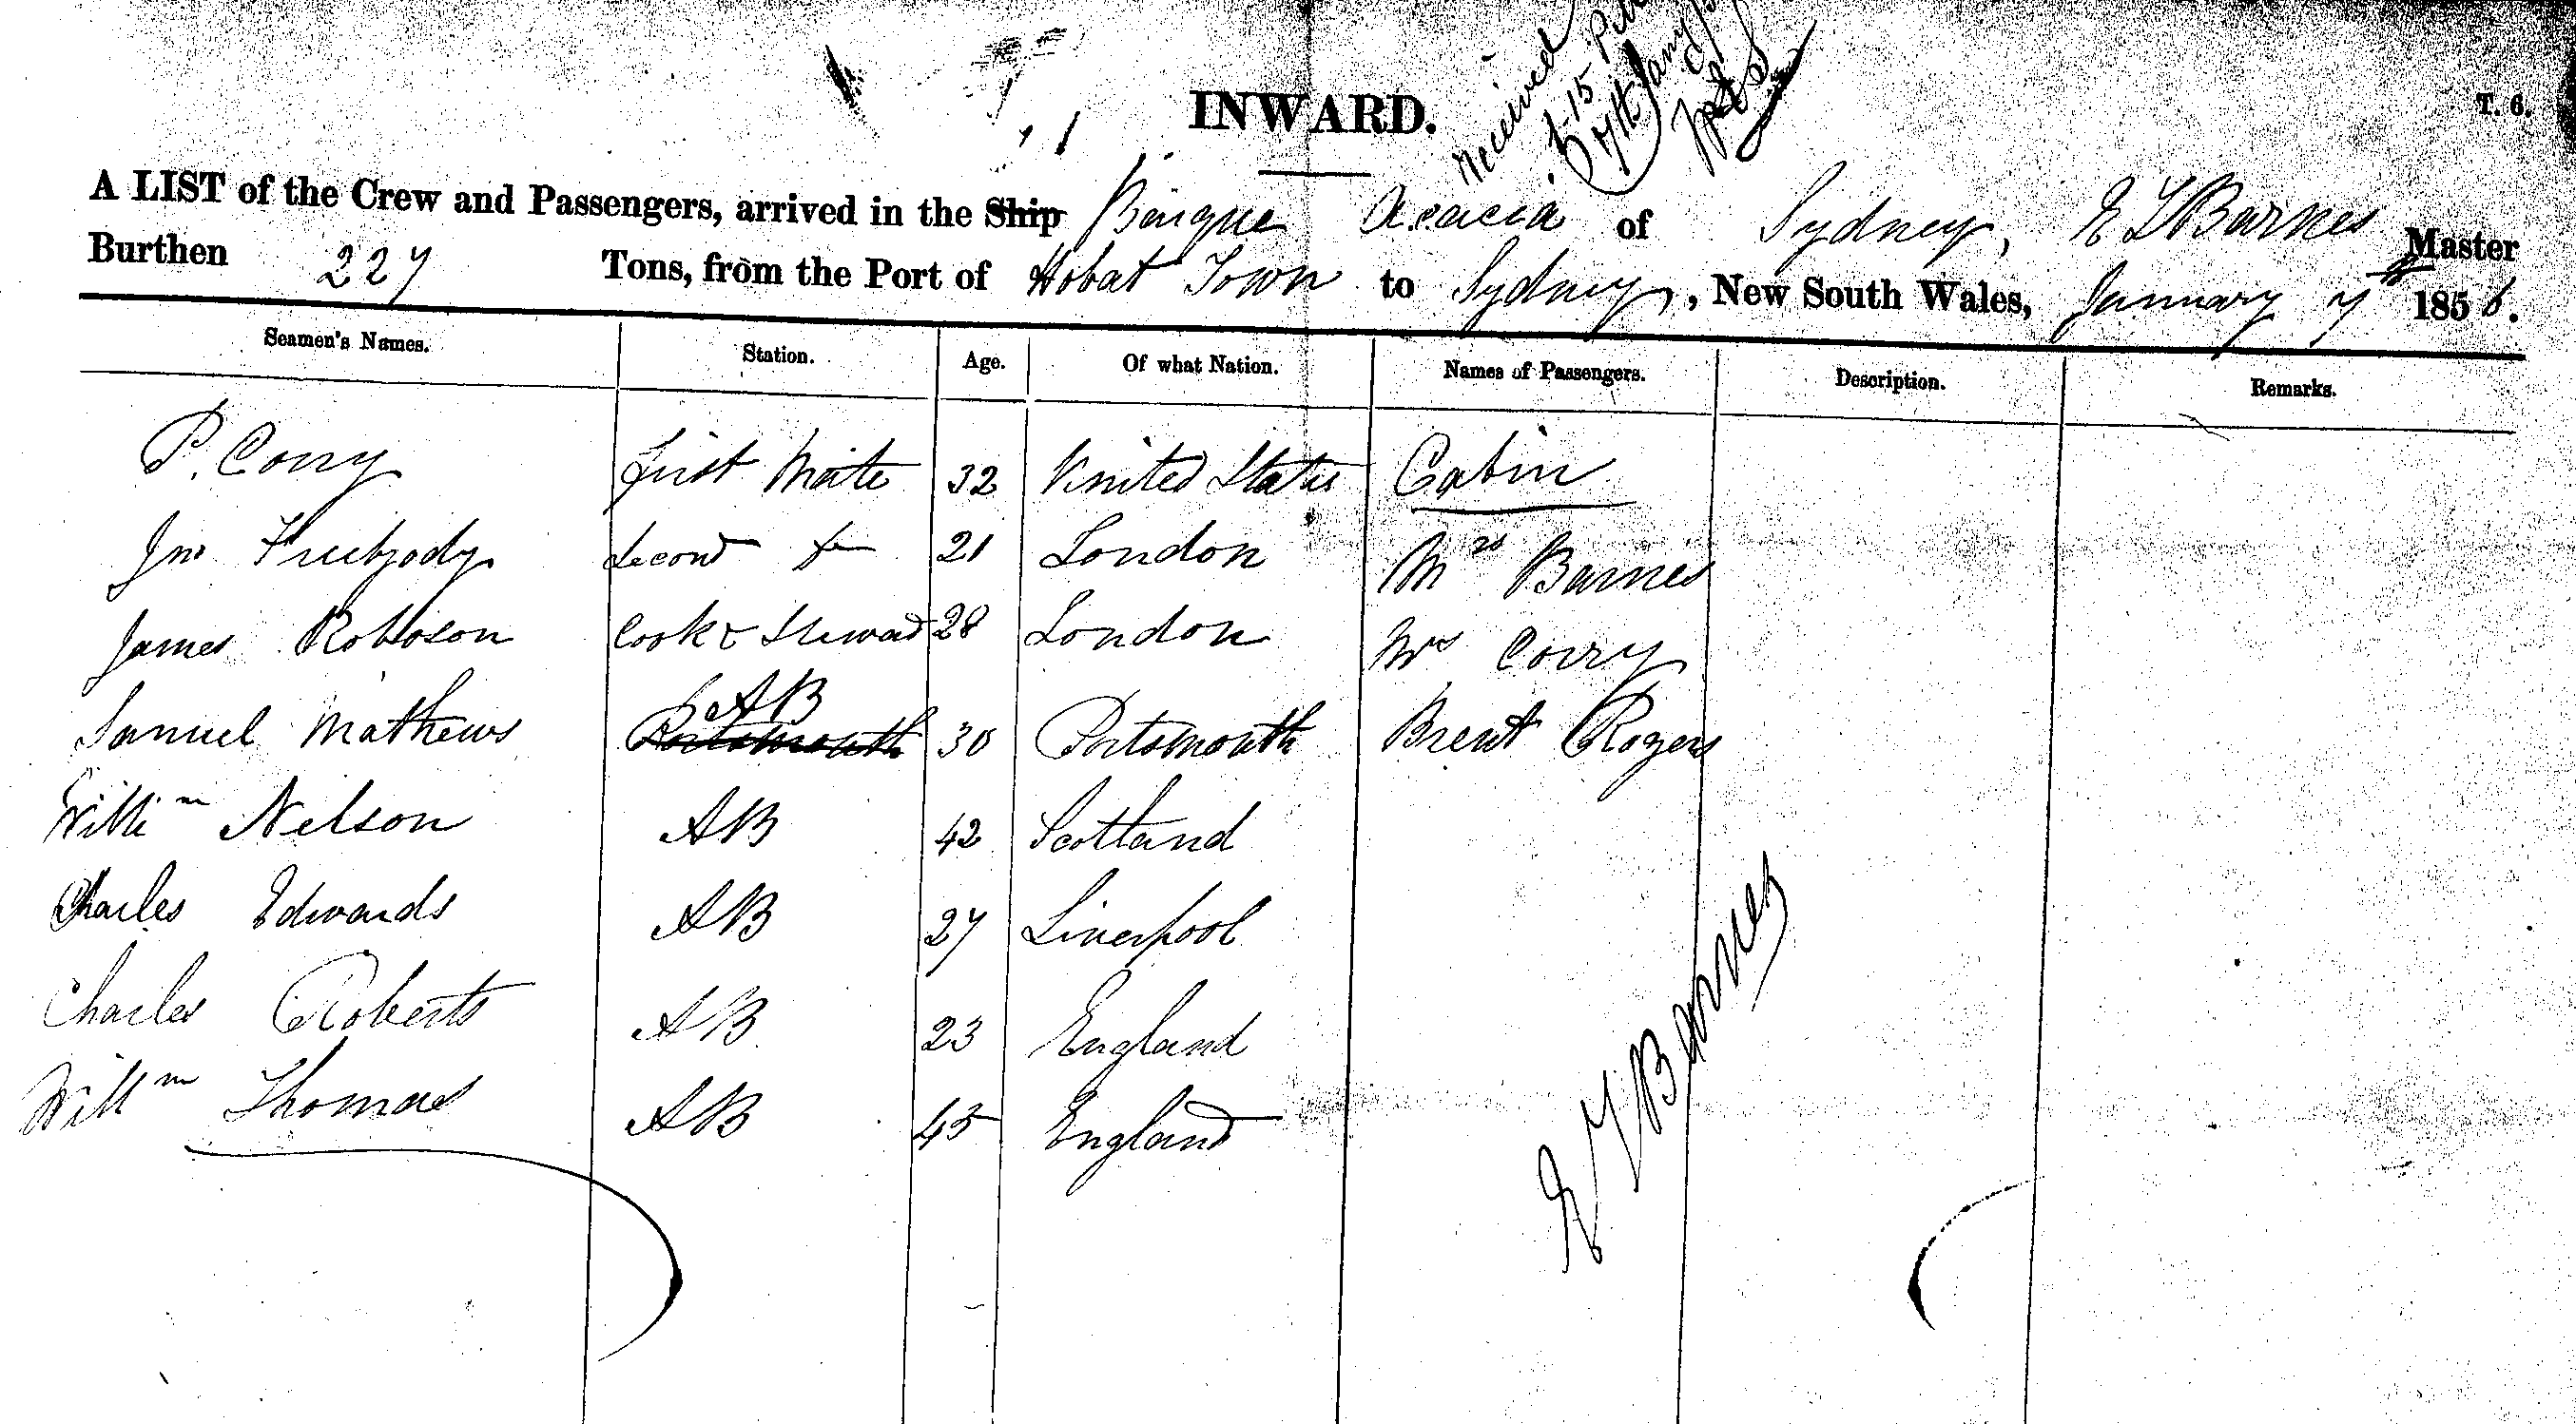 INWARD.
T. 6.
Received
A LIST of the Crew and Passengers, arrived in the Ship Barque Acacia of Sydney, E T Barnes Master
Burthen 227 Tons, from the Port of Hobat Town to Sydney, New South Wales, January 7th 1856.
Seamen's Names. Station. Age. Of what Nation. Names of Passengers. Description. Remarks.
P. Corry First Mate 32 United States Cabin
Jno Freebody Second Do 21 London Mrs Barnes
James Robson Cook & Steward 28 London Mrs Corry
Samuel Mathews Portsmouth AB 30 Portsmouth Brent Rogers
Willm Nelson AB 42 Scotland
Charles Edwards AB 27 Liverpool
Charles Roberts AB 23 England
Willm Thomas AB 45 England
E T Barnes